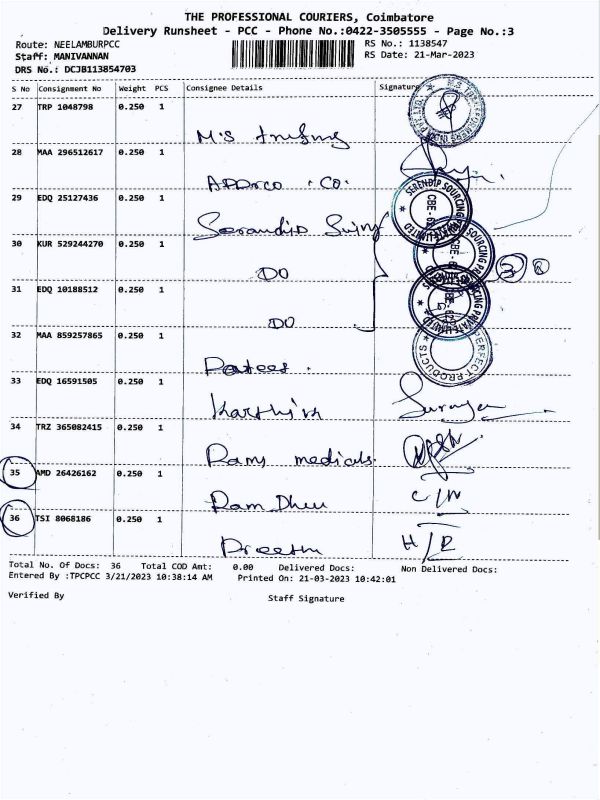 THE PROFESSIONAL COURIERS, Coimbatore
Delivery Runsheet - PCC - Phone No.:0422-3505555 - Page No.:3
Route: NEELAMBURPCC RS No.: 1138547
Staff: MANIVANNAN RS Date: 21-Mar-2023
DRS No.: DCJB113854703
S No Consignment No Weight PCS Consignee Details Signature
27 TRP 1048798 0.250 1
M.S
28 MAA 296512617 0.250 1
Co.
29 EDQ 25127436 0.250 1
SERENDIP SOURCING PRIVATE LIMITED
CBE - 62
30 KUR 529244270 0.250 1
DO
SOURCING PRIVATE LIMITED
3
31 EDQ 10188512 0.250 1
DO
32 MAA 859257865 0.250 1
PERFECT PRODUCTS
33 EDQ 16591505 0.250 1
Karthik
34 TRZ 365082415 0.250 1
Rams medicals.
35 AMD 26426162 0.250 1
Ram
C/N
36 TSI 8068186 0.250 1
Preethi
Total No. Of Docs: 36 Total COD Amt: 0.00 Delivered Docs: Non Delivered Docs:
Entered By :TPCPCC 3/21/2023 10:38:14 AM Printed On: 21-03-2023 10:42:01
Verified By Staff Signature